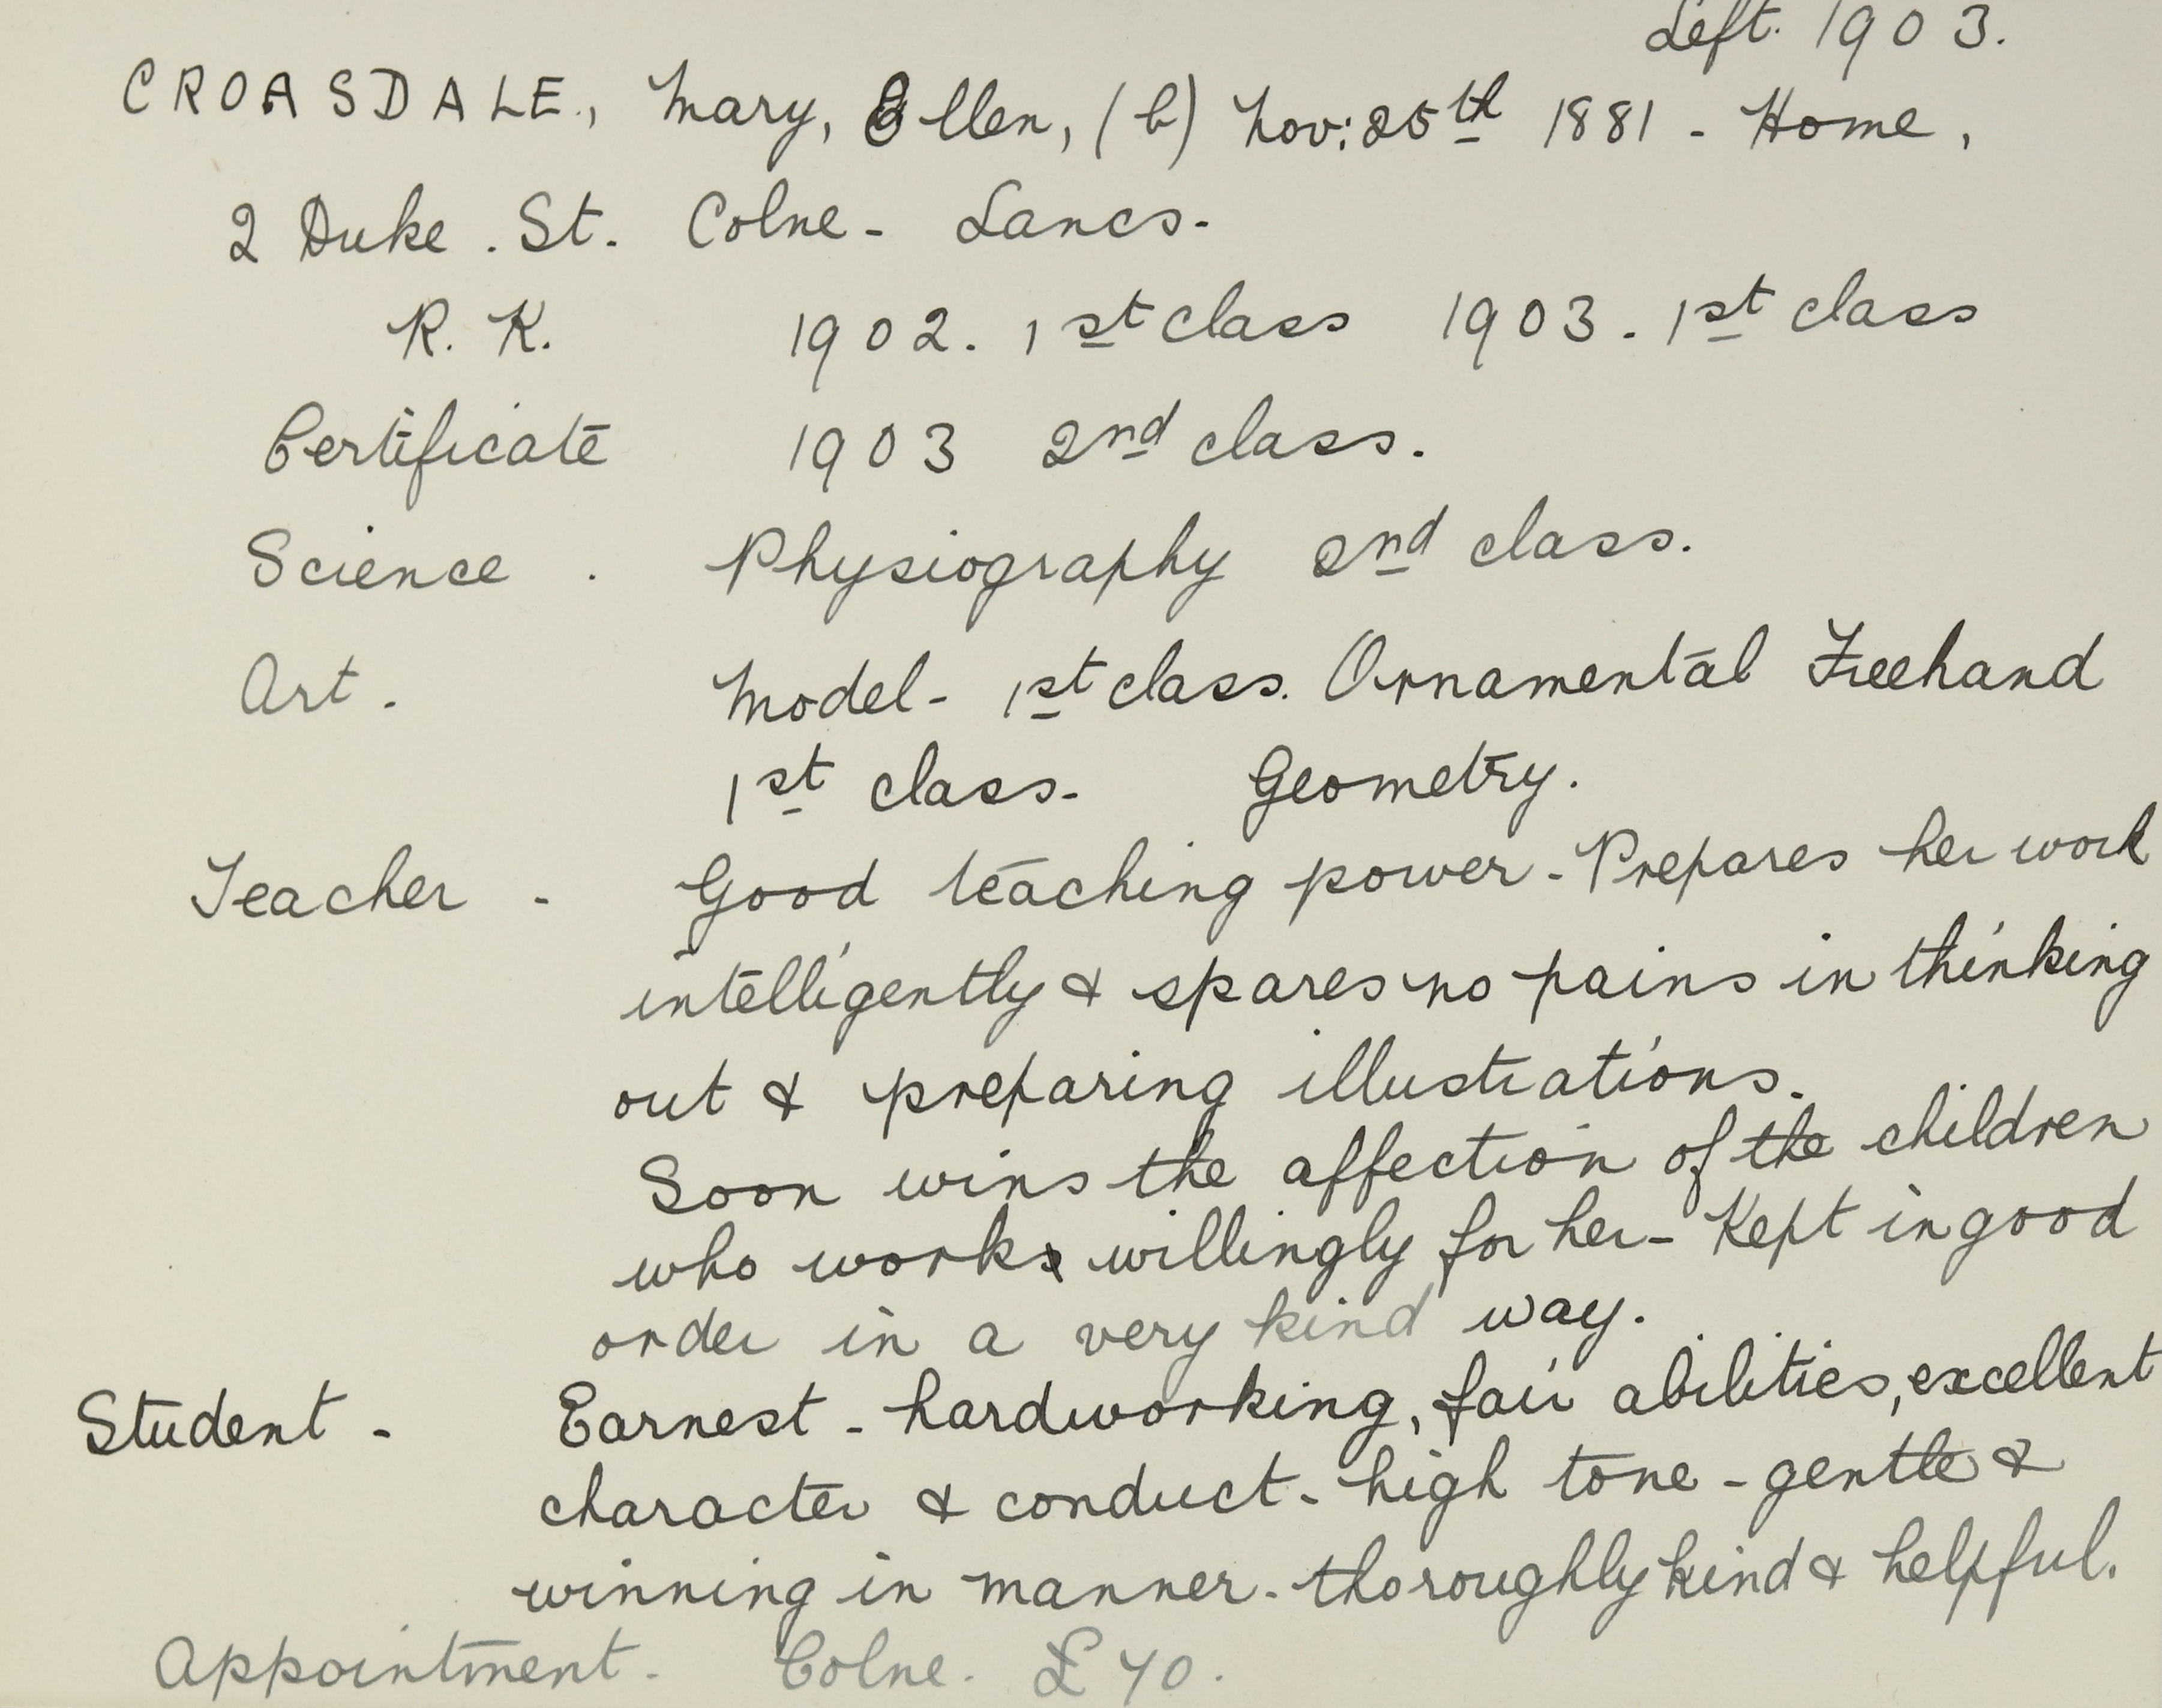 Left. 1903.
CROASDALE., Mary, Ellen, (b) Nov: 25th 1881 - Home,
2 Duke . St. Colne - Lancs.
R. K. 1902. 1st class 1903. 1st class
Certificate 1903 2nd class.
Science . Physiography 2nd class.
Art. Model - 1st class. Ornamental Freehand
1st class - Geometry.
Teacher - Good teaching power - Prepares her work
intelligently & spares no pains in thinking
out & preparing illustrations.
Soon wins the affection of the children
who works willingly for her - Kept in good
order in a very kind way.
Student - Earnest - hardworking, fair abilities, excellent
character & conduct - high tone - gentle &
winning in manner - thoroughly kind & helpful.
Appointment. Colne. £70.